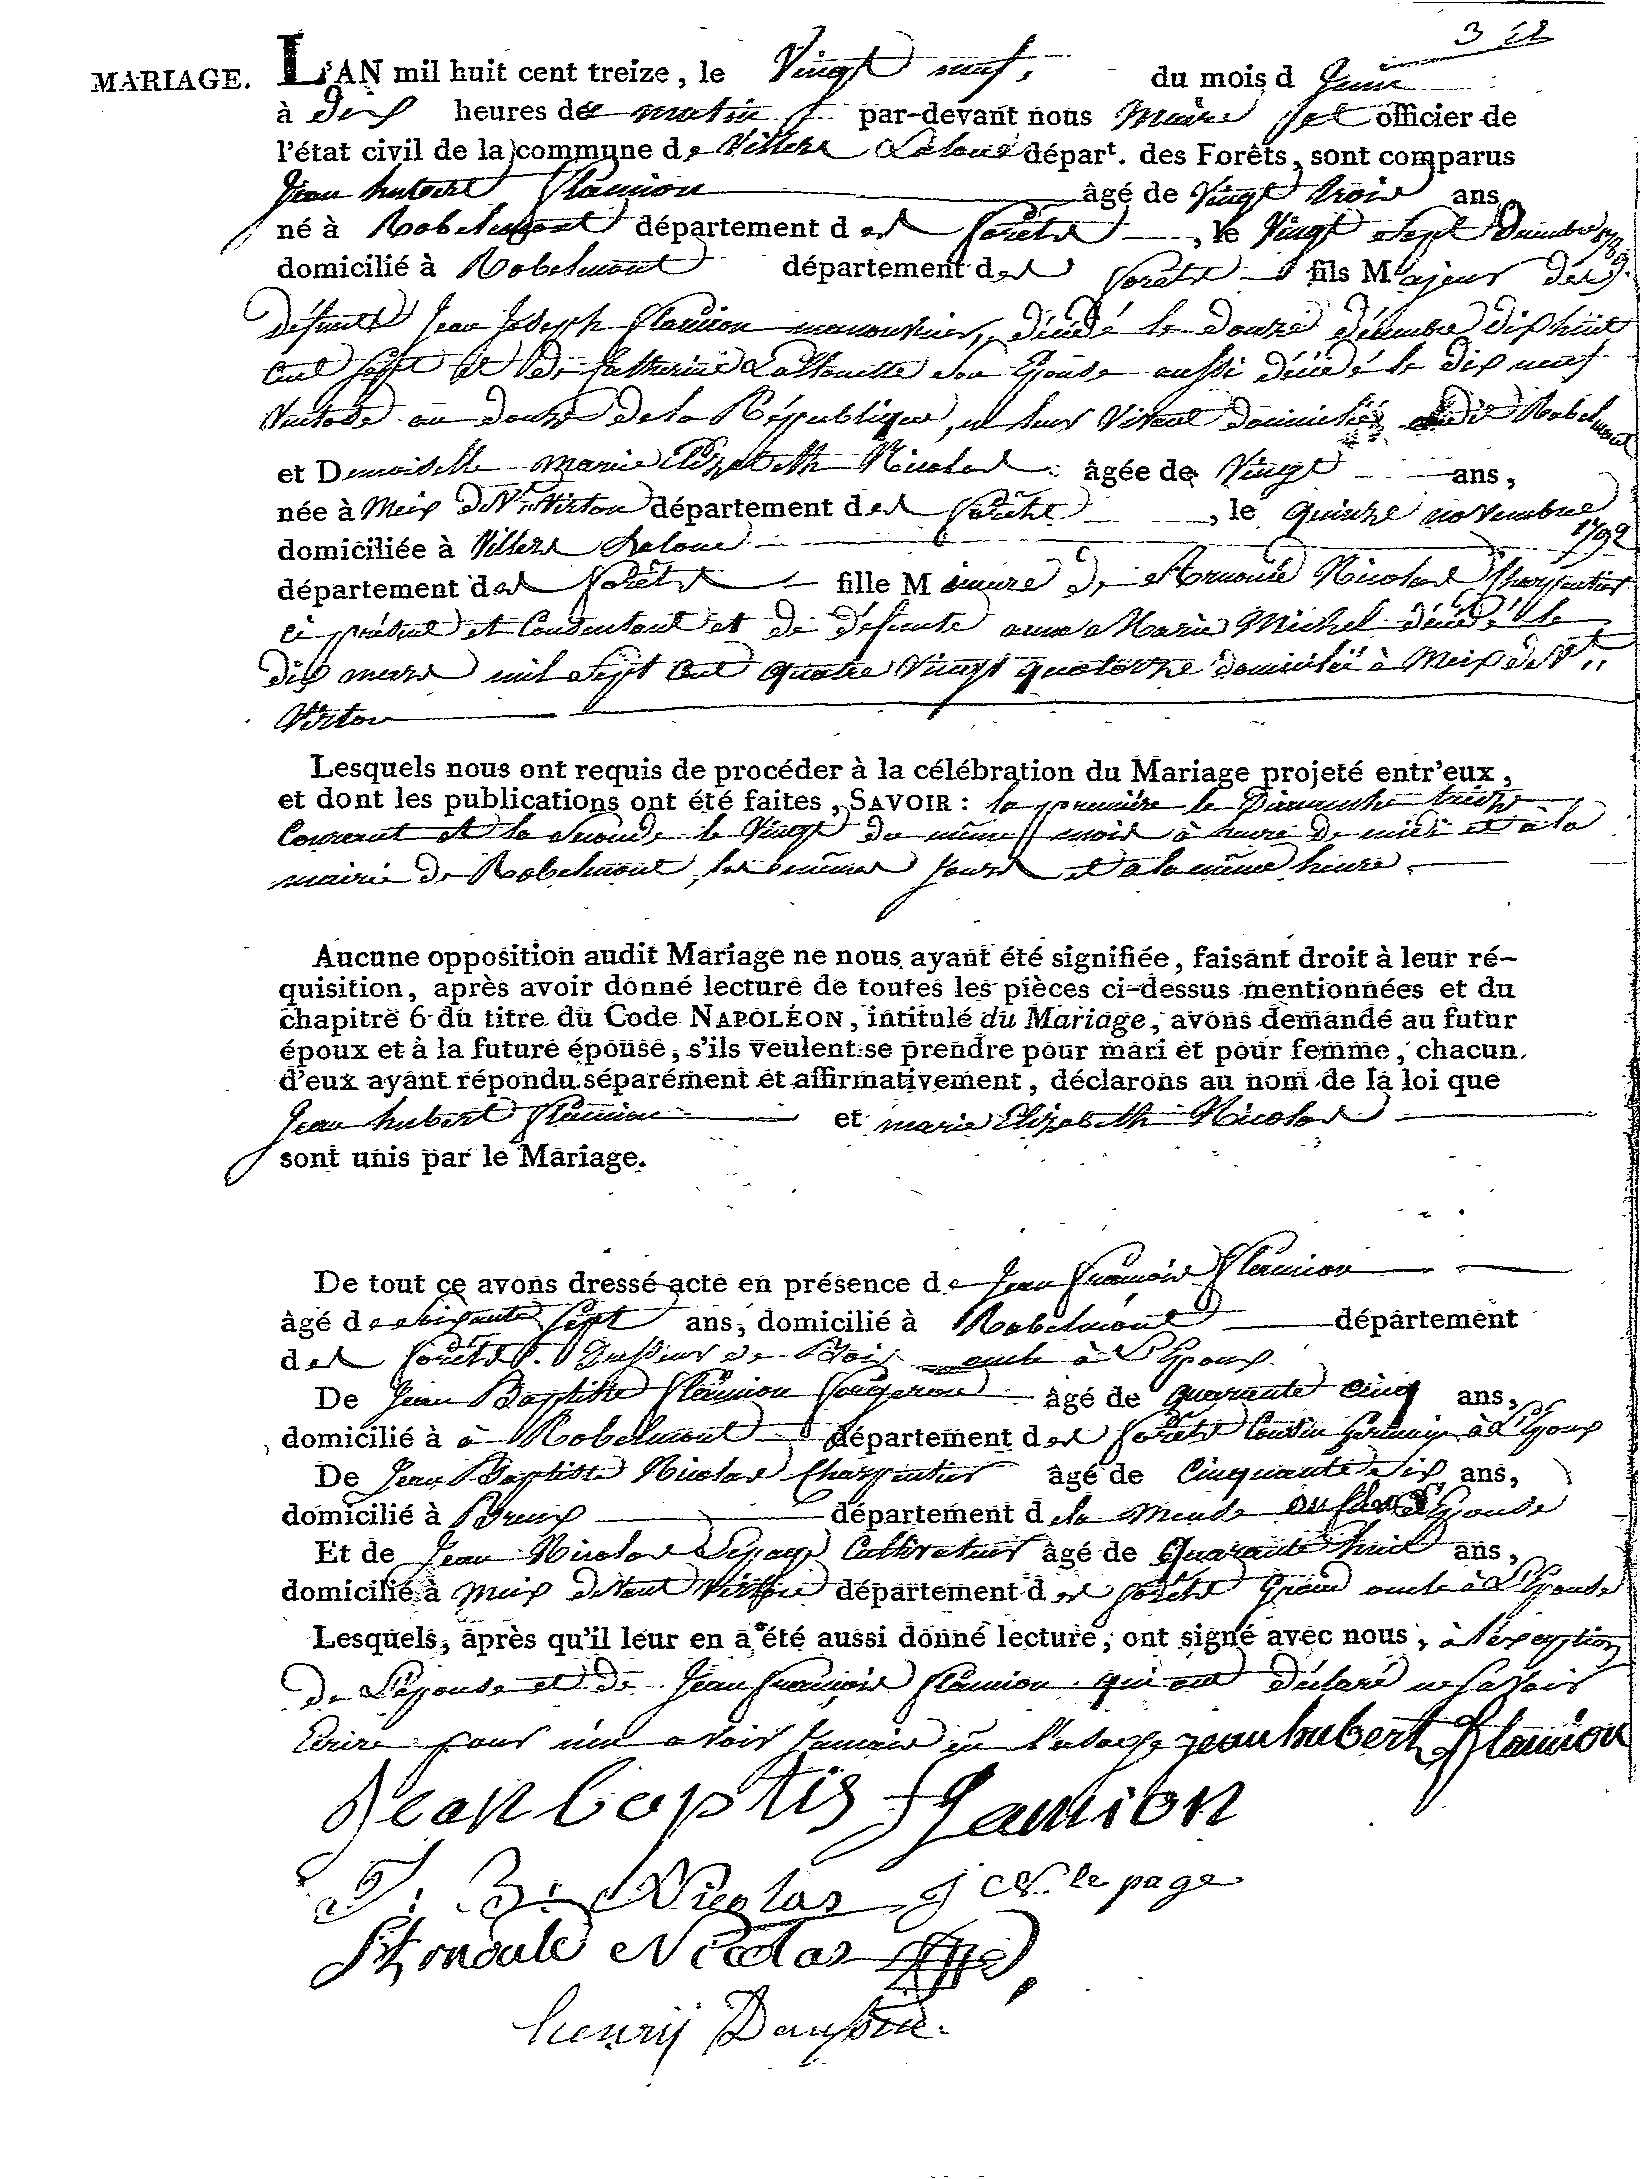 3 22
MARIAGE. L'AN mil huit cent treize, le Vingt neuf, du mois d Juin
à Dix heures de matin par-devant nous Maire et officier de
l'état civil de la commune de Villers Laloue départ. des Forêts, sont comparus
Jean hubert Flamion âgé de Vingt trois ans
né à Robelmont département des forêts, le Vingt sept Décembre 1789.
domicilié à Robelmont département des forêts fils Majeur des
défunts Jean Joseph Flamion manouvrier, décédé le douze décembre dix huit
cent sept et de Catherine Lallouette son Epouse aussi décédé le dix neuf
Ventose an douze de la République, en leur vivant domiciliés Robelmont
et Demoiselle marie Elizabeth Nicolas âgée de Vingt ans,
née à Meix Dvt Virton département des forêts, le quinze novembre 1792
domiciliée à Villers Laloue
département des forêts fille Mineure de Arnould Nicolas Charpentier
ci présent et Consentant et de défunte anne Marie Michel décédé le
dix mars mil sept cent quatre vingt quatorze domiciliée à Meix devt
Virton
Lesquels nous ont requis de procéder à la célébration du Mariage projeté entr'eux,
et dont les publications ont été faites, SAVOIR : la première le Dimanche treize
Courant et la seconde le Vingt du même mois à heure de midi et à la
mairie de Robelmont, les mêmes jours et a la même heure.
Aucune opposition audit Mariage ne nous ayant été signifiée, faisant droit à leur ré-
quisition, après avoir donné lecture de toutes les pièces ci-dessus mentionnées et du
chapitre 6 du titre du Code NAPOLÉON, intitulé du Mariage, avons demandé au futur
époux et à la future épouse, s'ils veulent se prendre pour mari et pour femme, chacun
d'eux ayant répondu séparément et affirmativement, déclarons au nom de la loi que
Jean hubert Flamion et marie Elizabeth Nicolas
sont unis par le Mariage.
De tout ce avons dressé acte en présence de Jean François Flamion
âgé de soixante sept ans, domicilié à Robelmont département
des forêts. de Bois oncle à l'Epoux
De Jean Baptiste Flamion âgé de quarante cinq ans,
domicilié à à Robelmont département des forêts Cousin Germain à l'Epoux
De Jean Baptiste Nicolas Charpentier âgé de Cinquante six ans,
domicilié à Breux département de la Meuse l'Epouse
Et de Jean Nicolas Lepage Cultivateur âgé de Quarante huit ans,
domicilié à Meix devant Virton département des forêts Grand oncle à L'Epouse
Lesquels, après qu'il leur en a été aussi donné lecture, ont signé avec nous, à l'exception
de L'épouse et de Jean François Flamion qui ont déclaré ne savoir
Ecrire pour n'en avoir jamais eu l'usage jean hubert Flamion
Jean baptis flamion
J : B : Nicolas j N le page
Nicolas
henry